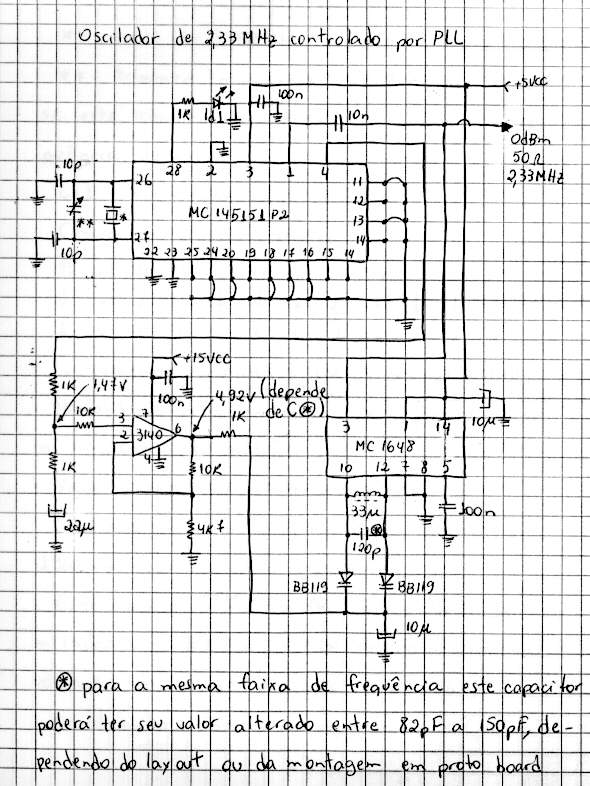 Oscilador de 2,33 MHz controlado por PLL
+5VCC
100n
1K
ld1
10n
0dBm
50Ω
2,33MHz
10p
28 2 3 1 4
26
11
12
MC 145151 P2
**
*
13
27
14
10p
22 23 25 24 20 19 18 17 16 15 14
+15VCC
1K
1,47V
100n
4,92V (depende
de C⊛)
10K
7
1K
3
3140
6
2
4
10µ
3 1 14
MC 1648
1K
10K
10 12 7 8 5
22µ
33µ
100n
4K7
⊛
120p
BB119
BB119
10µ
⊛ para a mesma faixa de frequência este capacitor
poderá ter seu valor alterado entre 82pF a 150pF, de-
pendendo do layout ou da montagem em proto board